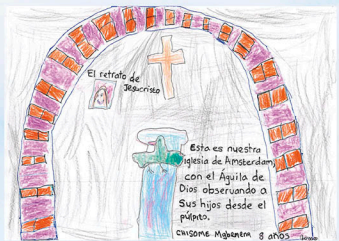 El retrato de
Jesucristo
Esta es nuestra
iglesia de Amsterdam,
con el Águila de
Dios observando a
Sus hijos desde el
púlpito.
CHISOME Mgbemena 8 años